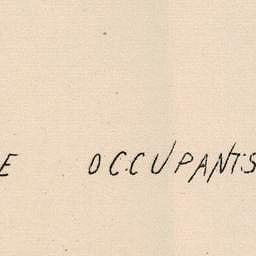 E OCCUPANTS